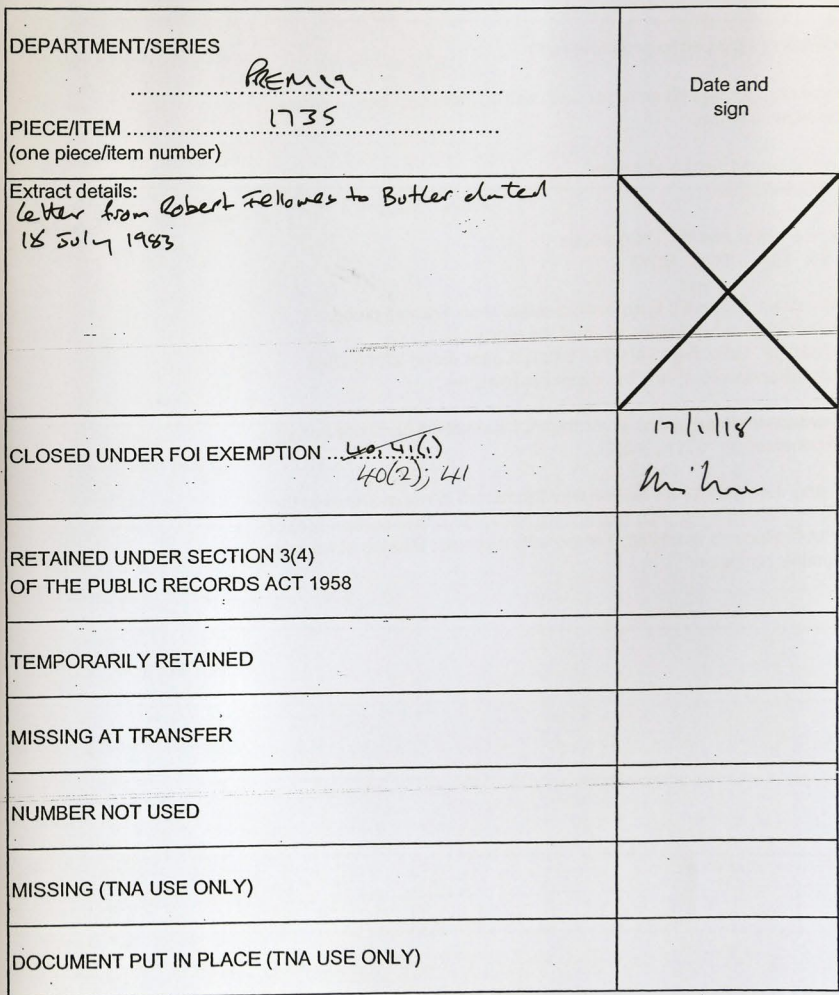 DEPARTMENT/SERIES
PREM 19
Date and
sign
PIECE/ITEM 1735
(one piece/item number)
Extract details:
Letter from Robert Fellowes to Butler dated
18 July 1983
CLOSED UNDER FOI EXEMPTION 40, 41(1)
40(2); 41
17/1/18
RETAINED UNDER SECTION 3(4)
OF THE PUBLIC RECORDS ACT 1958
TEMPORARILY RETAINED
MISSING AT TRANSFER
NUMBER NOT USED
MISSING (TNA USE ONLY)
DOCUMENT PUT IN PLACE (TNA USE ONLY)